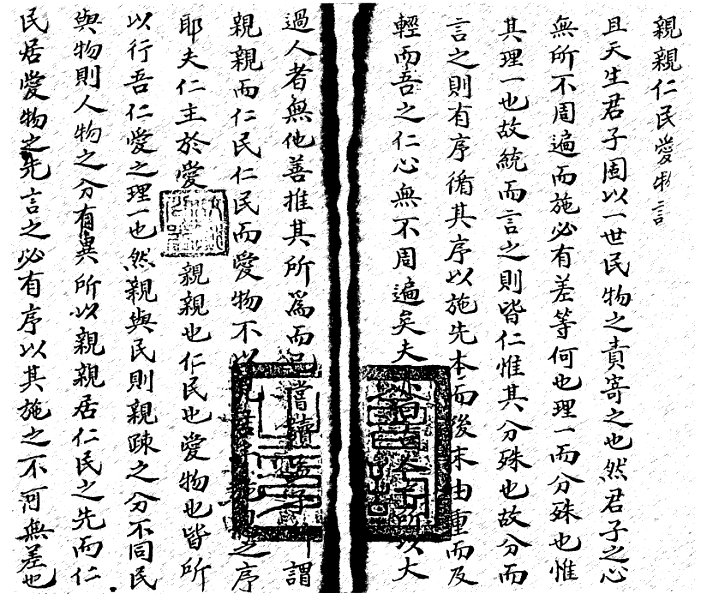 親親仁民愛物言
且天生君子固以一世民物之責寄之也然君子之心
無所不周遍而施必有差等何也理一而分殊也惟
其理一也故統而言之則皆仁惟其分殊也故分而
言之則有序循其序以施先本而後末由重而及
輕而吾之仁心無不周遍矣夫 所以大
過人者無他善推其所爲而已嘗讀孟子 謂
親親而仁民仁民而愛物不以 之序
耶夫仁主於愛 親親也仁民也愛物也皆所
以行吾仁愛之理一也然親與民則親疎之分不同民
與物則人物之分有異所以親親居仁民之先而仁
民居愛物之先言之必有序以其施之不可無差也